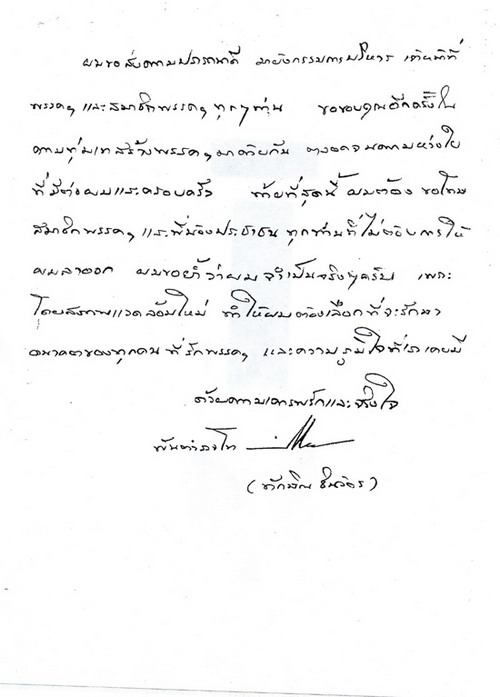 ผมขอส่งความปรารถนาดี มายังกรรมการบริหาร เจ้าหน้าที่
พรรคฯ และสมาชิกพรรคฯ ทุกๆท่าน ขอขอบคุณอีกครั้งใน
ความทุ่มเทสร้างพรรคฯ มาด้วยกัน ตลอดจนความห่วงใย
ที่มีต่อผมและครอบครัว ท้ายที่สุดนี้ ผมต้อง ขอโทษ
สมาชิกพรรคฯ และพี่น้องประชาชน ทุกท่านที่ไม่ต้องการให้
ผมลาออก ผมขอย้ำว่าผม จำเป็นจริงๆครับ เพราะ
โดยสภาพแวดล้อมใหม่ ทำให้ผมต้องเลือกที่จะรักษา
อนาคตของทุกคน ที่รักพรรคฯ และความภูมิใจที่เราเคยมี
ด้วยความเคารพรักและจริงใจ
พันตำรวจโท
(ทักษิณ ชินวัตร)